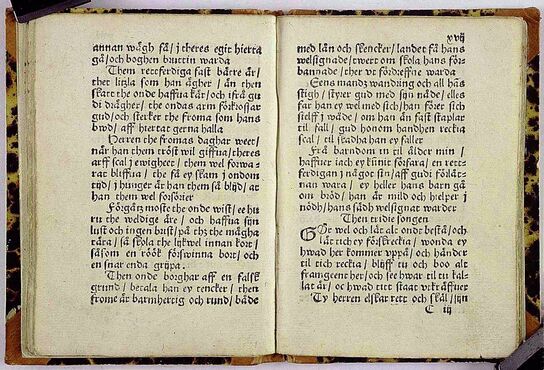 annan wägh få / j theres egit hierta
gå / och boghen bruttin warda
Them rettferdiga fast bärre är /
thet litzla som han ägher / än then
skatt the onde haffua kär / och ifrå gu
di drägher / the ondas arm förkrossar
gud / och stercker the froma som hans
bwd / aff hiertat gerna halla
Herren the fromas daghar weet /
när han them tröst wil giffua / theres
arff scal j ewigheet / them wel forwa-
rat bliffua / the få ey skam j ondom
tijd / j hunger är han them så blijd / at
han them wel forsörier
Förgätz moste the onde wist / ee hu
ru the weldige äre / och haffua sijn
lust och ingen brist / på thz the mägha
tära / så skola the lykwel innan kort /
såsom en röök förswinna bort / och
en snar enda gripa.
Then onde borghar aff en falsk
grund / betala han ey tencker / then
frome är barmhertig och rund / både
xvij
med lån och skencker / landet få hans
welsignade / twert om skola hans för-
bannade / ther vt fördreffne warda
Eens mandz wandring och all häs
stigh / styrer gud med sijn nåde / elles
far han ey wel med sich / han förer sich
sielff j wåde / om han än fast staplar
til fall / gud honom handhen reckia
scal / til skadha han ey faller
Frå barndom in til ålder min /
haffuer iach ey kunnit förfara / en rett-
ferdigan j något sin / aff gudi förlåt-
nan wara / ey heller hans barn gå
om bröd / han är mild och hielper j
nödh / hans sädh welsignat warder
Then tridie songen
Gör wel och lät alt onde bestå / och
lät tich ey förskreckia / wonda ey
hwad her kommer vppå / och händer
til tich reckia / blijff tu och boo alt
framgeent her / och see hwar til tu kal-
lat är / oc hwad titt staat vtkräffuer
Ty herren elskar rett och skäl / sijn
C iij